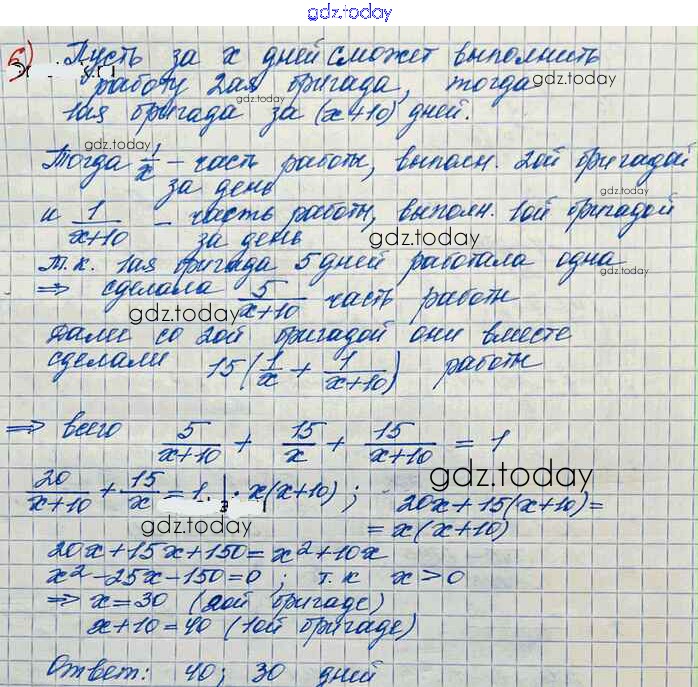 gdz.today
6) Пусть за x дней сможет выполнить
работу 2ая бригада, тогда
gdz.today gdz.today
1ая бригада за (x+10) дней.
gdz.today
Тогда 1/x – часть работы, выполн. 2ой бригадой
за день
gdz.today
и 1/(x+10) – часть работы, выполн. 1ой бригадой
за день
gdz.today
т.к. 1ая бригада 5 дней работала одна
gdz.today
⇒ сделала 5/(x+10) часть работы
gdz.today
Далее со 2ой бригадой они вместе
сделали 15(1/x + 1/(x+10)) работы
gdz.today
⇒ всего 5/(x+10) + 15/x + 15/(x+10) = 1
gdz.today
20/(x+10) + 15/x = 1 | · x(x+10) ; 20x+15(x+10)=
= x(x+10)
gdz.today
20x+15x+150=x²+10x
x²-25x-150=0 ; т.к x>0
⇒ x=30 (2ой бригаде)
x+10=40 (1ой бригаде)
Ответ: 40; 30 дней
gdz.today